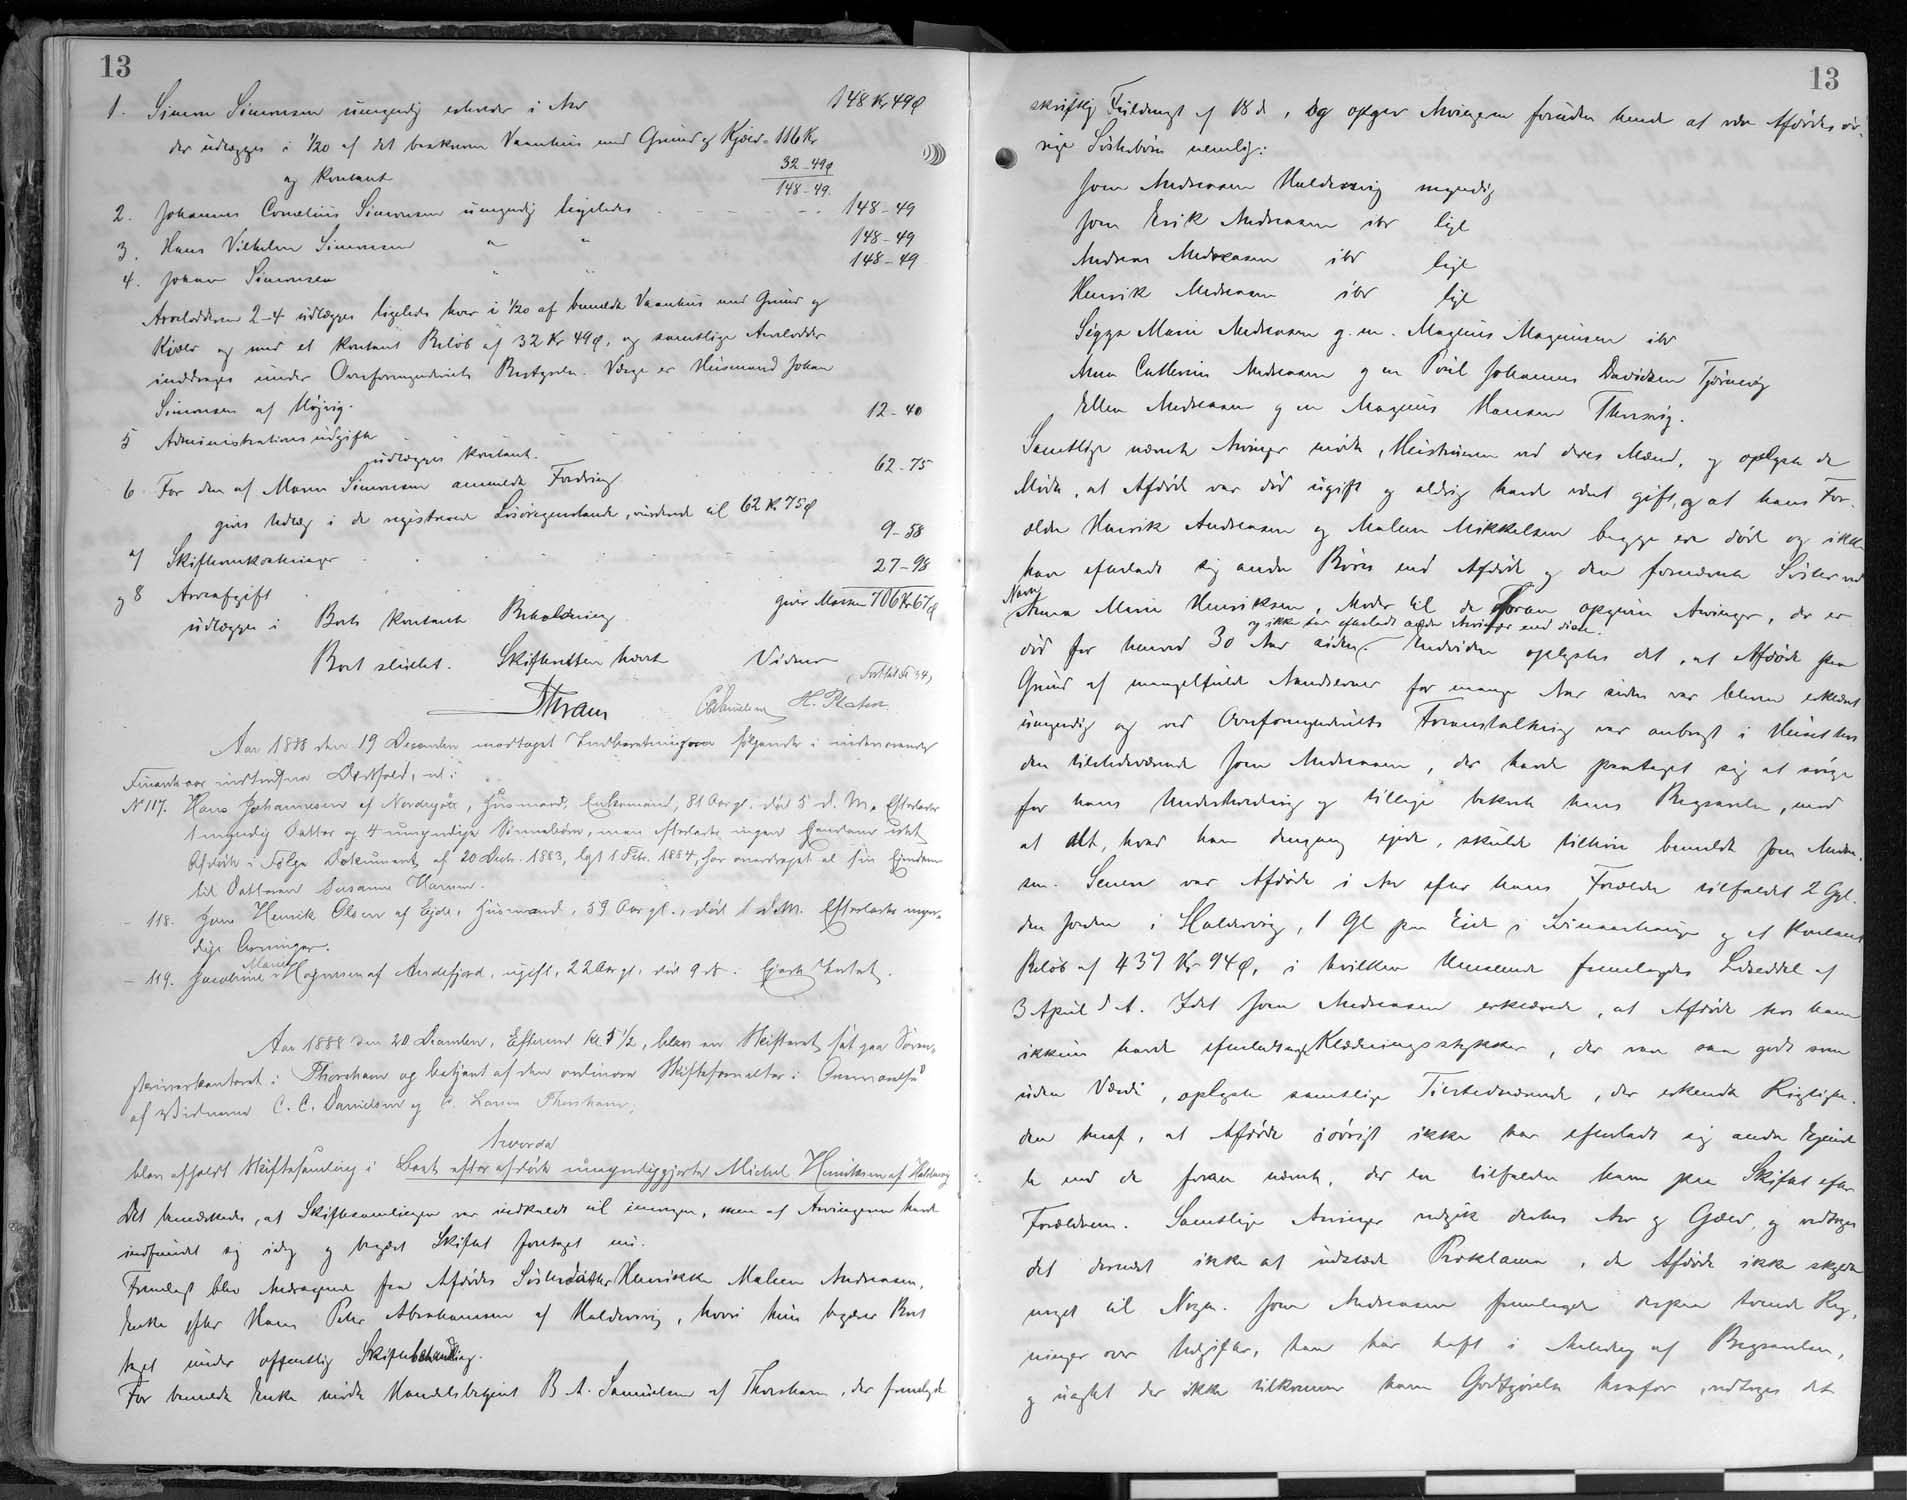 13
1. Simon Simonsen umyndig erholder i Arv 148 Kr 49 Ø
der udlægges i 1/20 af det beskrevne Vaanhus med Grund og Kjæld. 116 Kr
og kontant 32-49 Ø
148-49.
2. Johannes Cornelius Simonsen umyndig ligeledes 148-49
3. Hans Vilhelm Simonsen " " 148-49
4. Johan Simonsen " " 148-49
Arvelodderne 2-4 udlægges ligeledes hver i 1/20 af bemeldte Vaanhus med Grund og
Kjæld og med et kontant Beløb af 32 Kr 49 Ø, og samtlige Arvelodder
inddrages under Overformynderiets Bestyrelse. Værge er Huusmand Johan
Simonsen af Højvig.
5 Administrationsudgifter 12-40
udlægges kontant.
6 For den af Maren Simonsen anmeldte Fordring 62-75
gives Udlæg i de registrerede Løsøregjenstande, vurderede til 62 Kr 75 Ø
7 Skifteomkostninger 9-88
og 8 Arveafgift 27-98
udlægges i Boets kontante Beholdning giver Massen 706 Kr 67 Ø
Boet sluttet. Skifteretten hævet Vidner
(Fortsat 34)
CCDanielsen H. Platou
Aar 1888 den 19 December modtaget Indberetning om følgende i indeværende
Finantsaar indtrufne Dødsfald, nl:
No 117. Hans Johannesen af Nordregöte, Huusmand, Enkemand, 81 Aar gl. død 5 d. M. Efterlader
1 myndig Datter og 4 umyndige Sønnebørn, men efterlader ingen Ejendom idet
Afdøde i Følge Dokument af 20 Decb. 1883, lgt 1 Febr. 1884, har overdraget al sin Ejendom
til Datteren Susanne Hansen.
- 118. Jens Henrik Olsen af Ejde, Huusmand, 59 Aar gl., død 1 d. M. Efterlader myn-
dige Arvinger.
- 119. Jacobine Marie Mogensen af Andefjord, ugift, 22 Aar gl. død 9 ds. Ejede Intet.
Aar 1888 den 20 December, Efterm. Kl 5 1/2, blev en Skifteret sat paa Soren-
skriverkontoret i Thorshavn og betjent af den ordinære Skifteforvalter i Overværelse
af Vidnerne C. C. Danielsen og C. Larsen Thorshavn,
hvorda
blev afholdt Skiftesamling i Boet efter afdøde umyndiggjorte Michel Henriksen af Haldersvig
Det bemærkedes, at Skiftesamlingen var indkaldt til imorgen, men af Arvingerne havde
indfundet sig idag og begjært Skiftet foretaget nu.
Fremlagt blev Andragende fra Afdødes Søsterdatter Henrikke Malene Andreasen,
Enke efter Hans Peter Abrahamsen af Haldersvig, hvori hun begærer Boet
taget under offentlig Skiftebehandling.
For bemeldte Enke mødte Handelsbetjent B A. Samuelsen af Thorshavn, der fremlagde
13
skriftlig Fuldmagt af 18 ds, og opgav Arvingerne foruden hende at være Afdødes øv-
rige Søsterbørn nemlig:
Joen Andreasen Haldersvig myndig
Joen Erik Andreasen ibr lige
Andreas Andreasen ibr lige
Henrik Andreasen ibr lige
Sigga Marie Andreasen g. m. Magnus Magnusen ibr
Anna Cathrine Andreasen g m Poul Johannes Davidsen Tjörnevig
Ellen Andreasen g m Magnus Hansen Thorsvig.
Samtlige nævnte Arvinger mødte, Hustruerne ved deres Mænd, og oplyste de
Mødte, at Afdøde var død ugift og aldrig havde været gift, og at hans For-
ældre Henrik Andreasen og Malene Mikkelsen begge ere døde og ikke
have efterladt sig andre Børn end Afdøde og den fornævnte Søster ved
Navn Anna Marie Henriksen, Moder til de foran opgivne Arvinger, der er
død for henved 30 Aar siden og ikke har efterladt andre Arvinger end disse. Endvidere oplystes det, at Afdøde paa
Grund af mangelfulde Aandsevner for mange Aar siden var bleven erklæret
umyndig og ved Overformynderiets Foranstaltning var anbragt i Huset hos
den tilstedeværende Joen Andreasen, der havde paataget sig at sørge
for hans Underholdning og tillige bekoste hans Begravelse, mod
at Alt, hvad han dengang ejede, skulde tilhøre bemeldte Joen Andrea-
sen. Senere var Afdøde i Arv efter hans Forældre tilfaldet 2 Gyl.
den Jorden i Haldersvig, 1 Gl paa Eide og et kontant
Beløb af 437 Kr 94 Ø, i hvilken Henseende fremlagdes Lodseddel af
3 April d. A. Idet Joen Andreasen erklærede, at Afdøde hos ham
ikkun havde efterladt nogle Klædningsstykker, der var saa godt som
uden Værdi, oplyste samtlige Tilstedeværende, der erkendte Rigtighe-
den heraf, at Afdøde iøvrigt ikke har efterladt sig andre Ejende-
le end de foran nævnte, der ere tilfaldne ham paa Skiftet efter
Forældrene. Samtlige Arvinger vedgik derhos Arv og Gæld, og vedtoges
det derved ikke at udstede Proklama, da Afdøde ikke skyldte
noget til Nogen. Joen Andreasen fremlagde derpaa tvende Reg-
ninger over Udgifter, han har haft i Anledning af Begravelsen,
og uagtet der ikke tilkommer ham Godtgjørelse herfor, vedtoges det